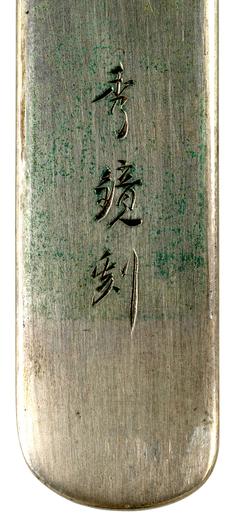 秀鏡刻